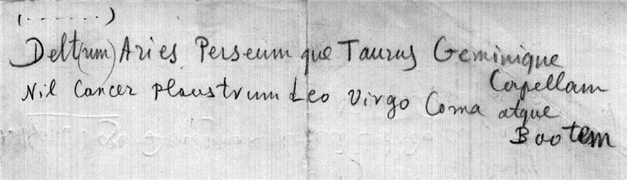 (.......)
Delt(um) Aries Perseum que Taurus Geminique
Capellam
Nil Cancer Plaustrum Leo Virgo Coma atque
Bootem